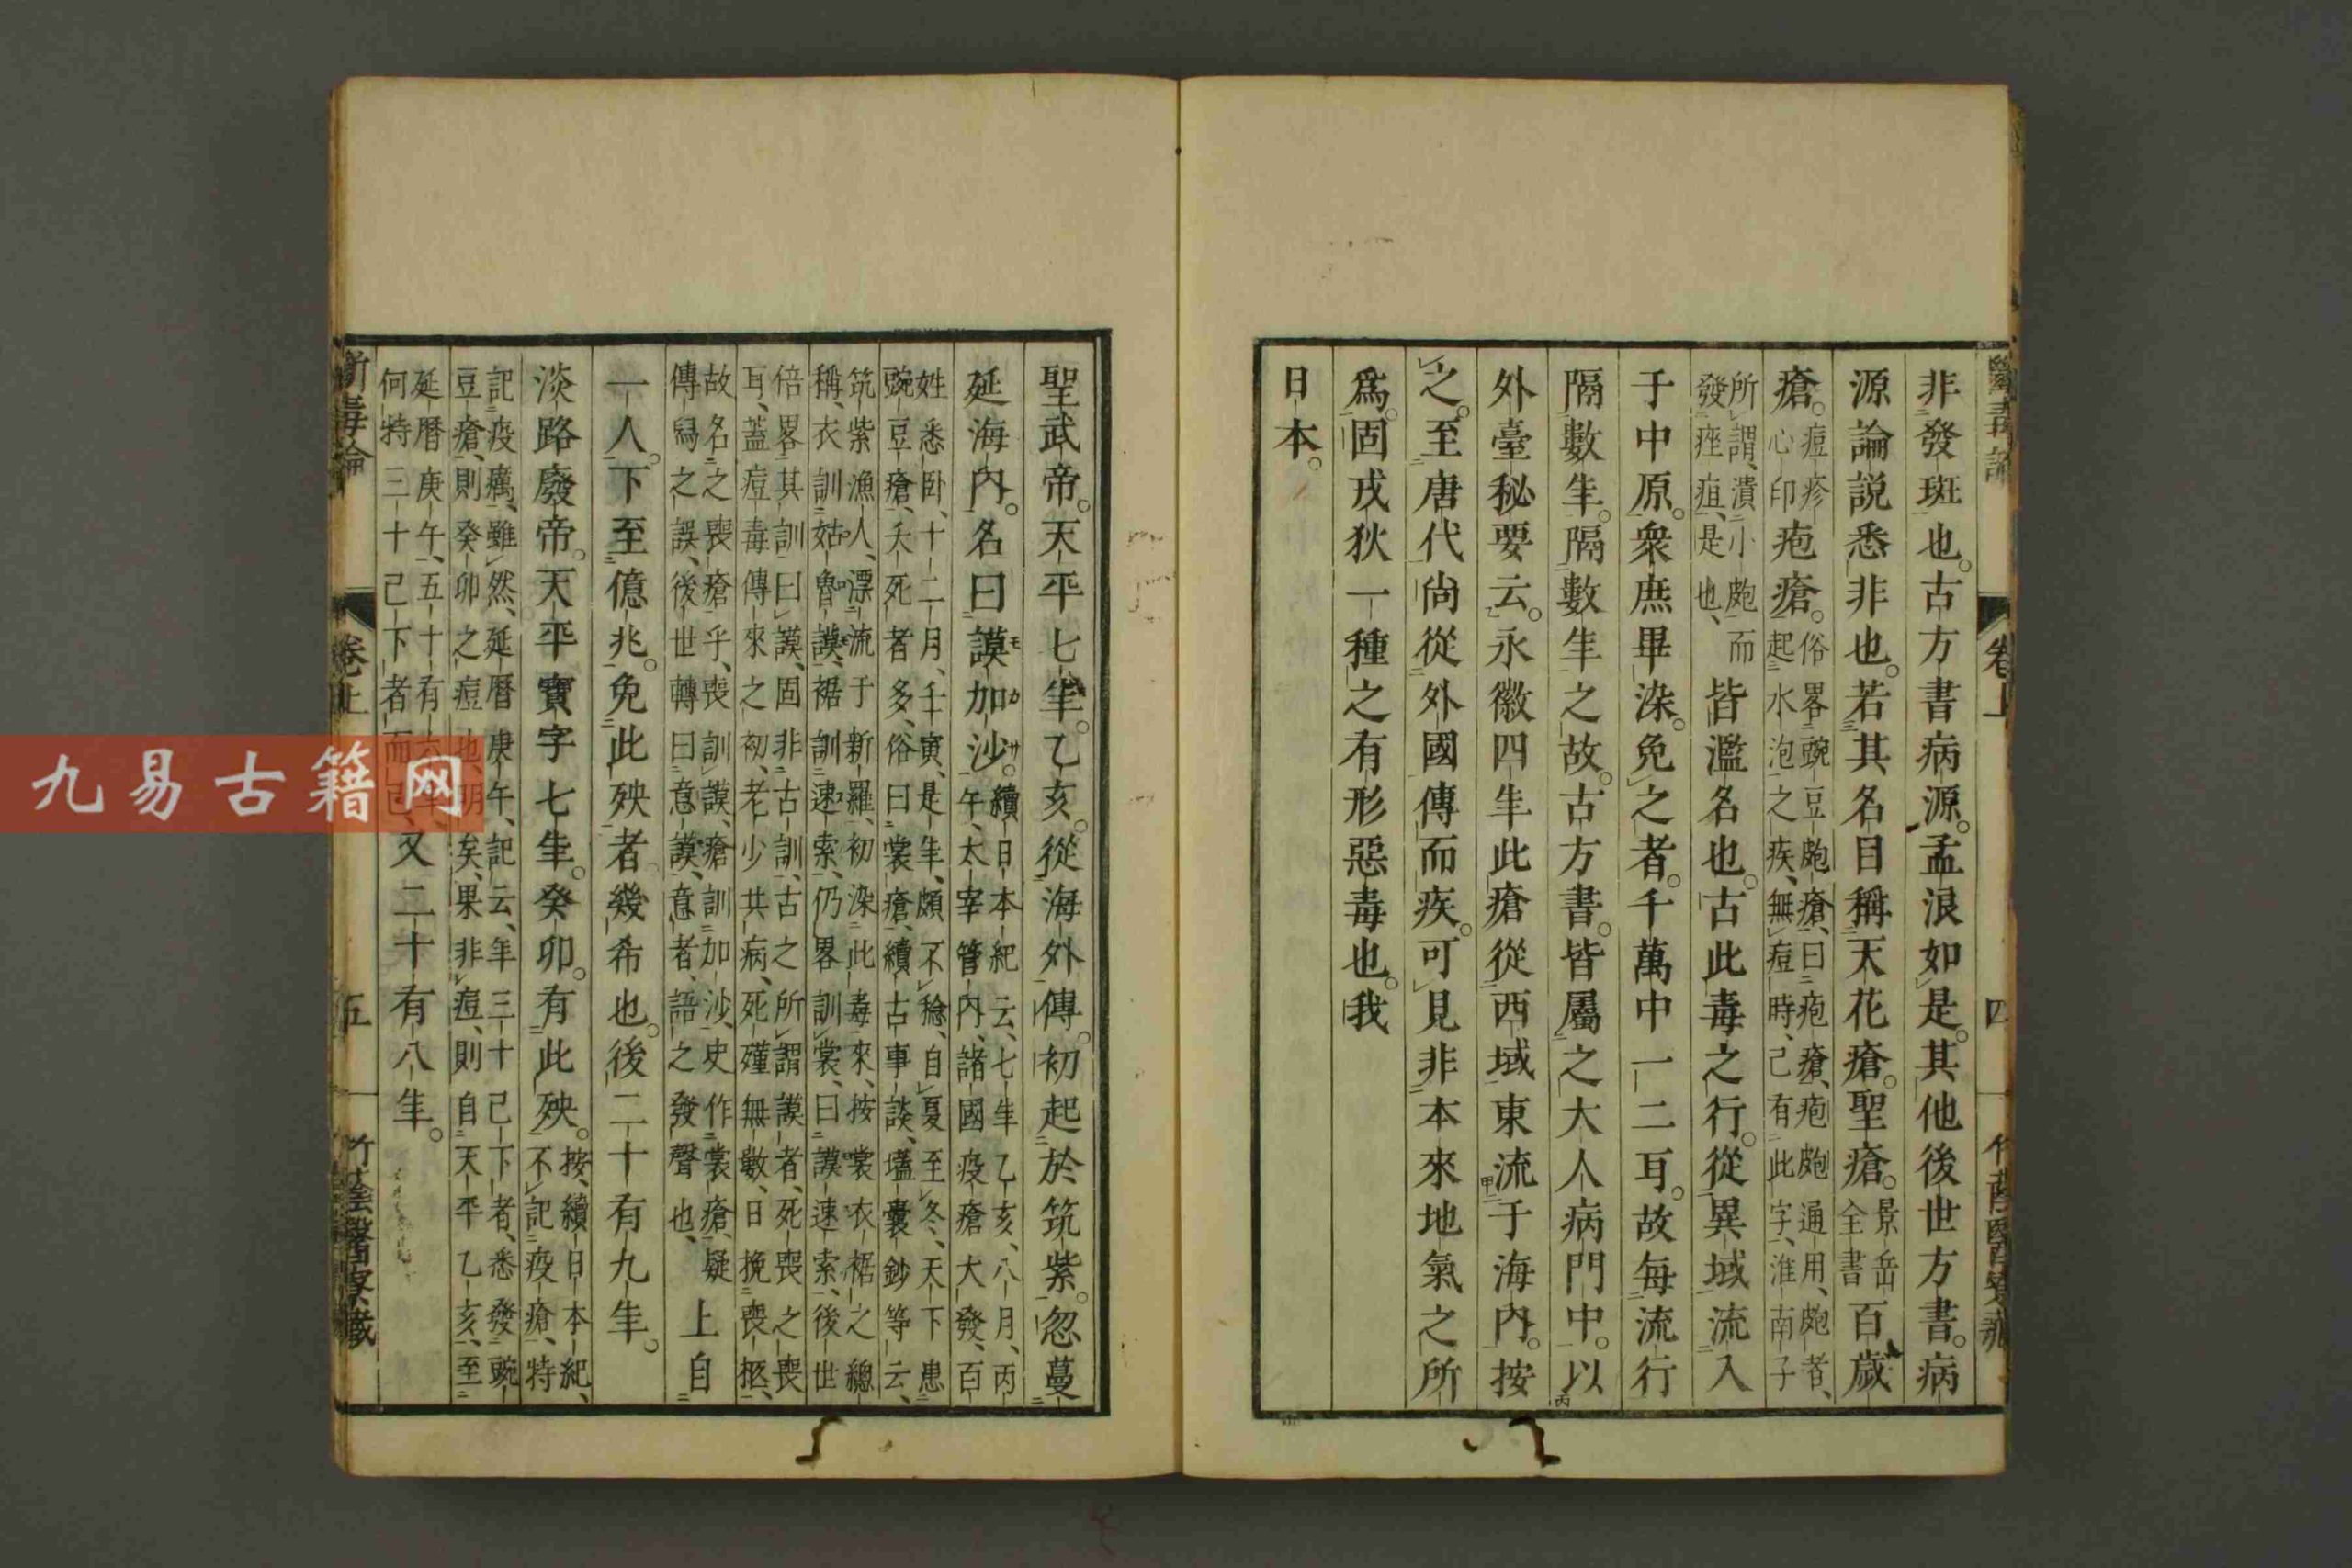 非發斑也。古方書病源。孟浪如是。其他後世方書。病
源論說悉非也。若其名目稱天花瘡。聖瘡。景岳全書百歲
瘡。痘疹心印疱瘡。俗畧豌豆皰瘡、曰疱瘡、疱皰通用、皰者、起水泡之疾、無痘時、己有此字、淮南子
所謂、潰小皰而發痤疽、是也、皆濫名也。古此毒之行。從異域流入
于中原。衆庶畢染。免之者。千萬中一二耳。故每流行
隔數年。隔數年之故。古方書。皆屬之大人病門中。以
外臺秘要云。永徽四年此瘡從西域東流于海內。按
之。至唐代尙從外國傳而疾。可見非本來地氣之所
爲。固戎狄一種之有形惡毒也。我
日本。
卷上
四
聖武帝。天平七年。乙亥。從海外傳。初起於筑紫。忽蔓
延海內。名曰謨加沙。續日本紀云、七年乙亥、八月、丙午、太宰管內、諸國疫瘡大發、百
姓悉卧、十二月、壬寅、是年、頗不稔、自夏至冬、天下患豌豆瘡、夭死者多、俗曰裳瘡、續古事談、壒囊鈔等云、
筑紫漁人、漂流于新羅、初染此毒來、按裳衣裾之總稱、衣訓姑魯謨、裾訓速索、仍畧訓裳、曰謨速索、後世
倍畧其訓曰謨、固非古訓、古之所謂謨者、死喪之喪耳、蓋痘毒傳來之初、老少共病、死殣無數、日挽喪柩、
故名之喪瘡乎、喪訓謨、瘡訓加沙、史作裳瘡、疑傳寫之誤、後世轉曰意謨、意者、語之發聲也、上自
一人。下至億兆。免此殃者幾希也。後二十有九年。
淡路廢帝。天平寶字七年。癸卯。有此殃。按、續日本紀、不記疫瘡、特
記疫癘、雖然、延曆庚午、記云、年三十己下者、悉發豌豆瘡、則癸卯之痘也、明矣、果非痘、則自天平乙亥、至
延曆庚午、五十有六年、何特三十己下者而已、又二十有八年。
卷上
五
竹蔭醫寮藏
九易古籍网